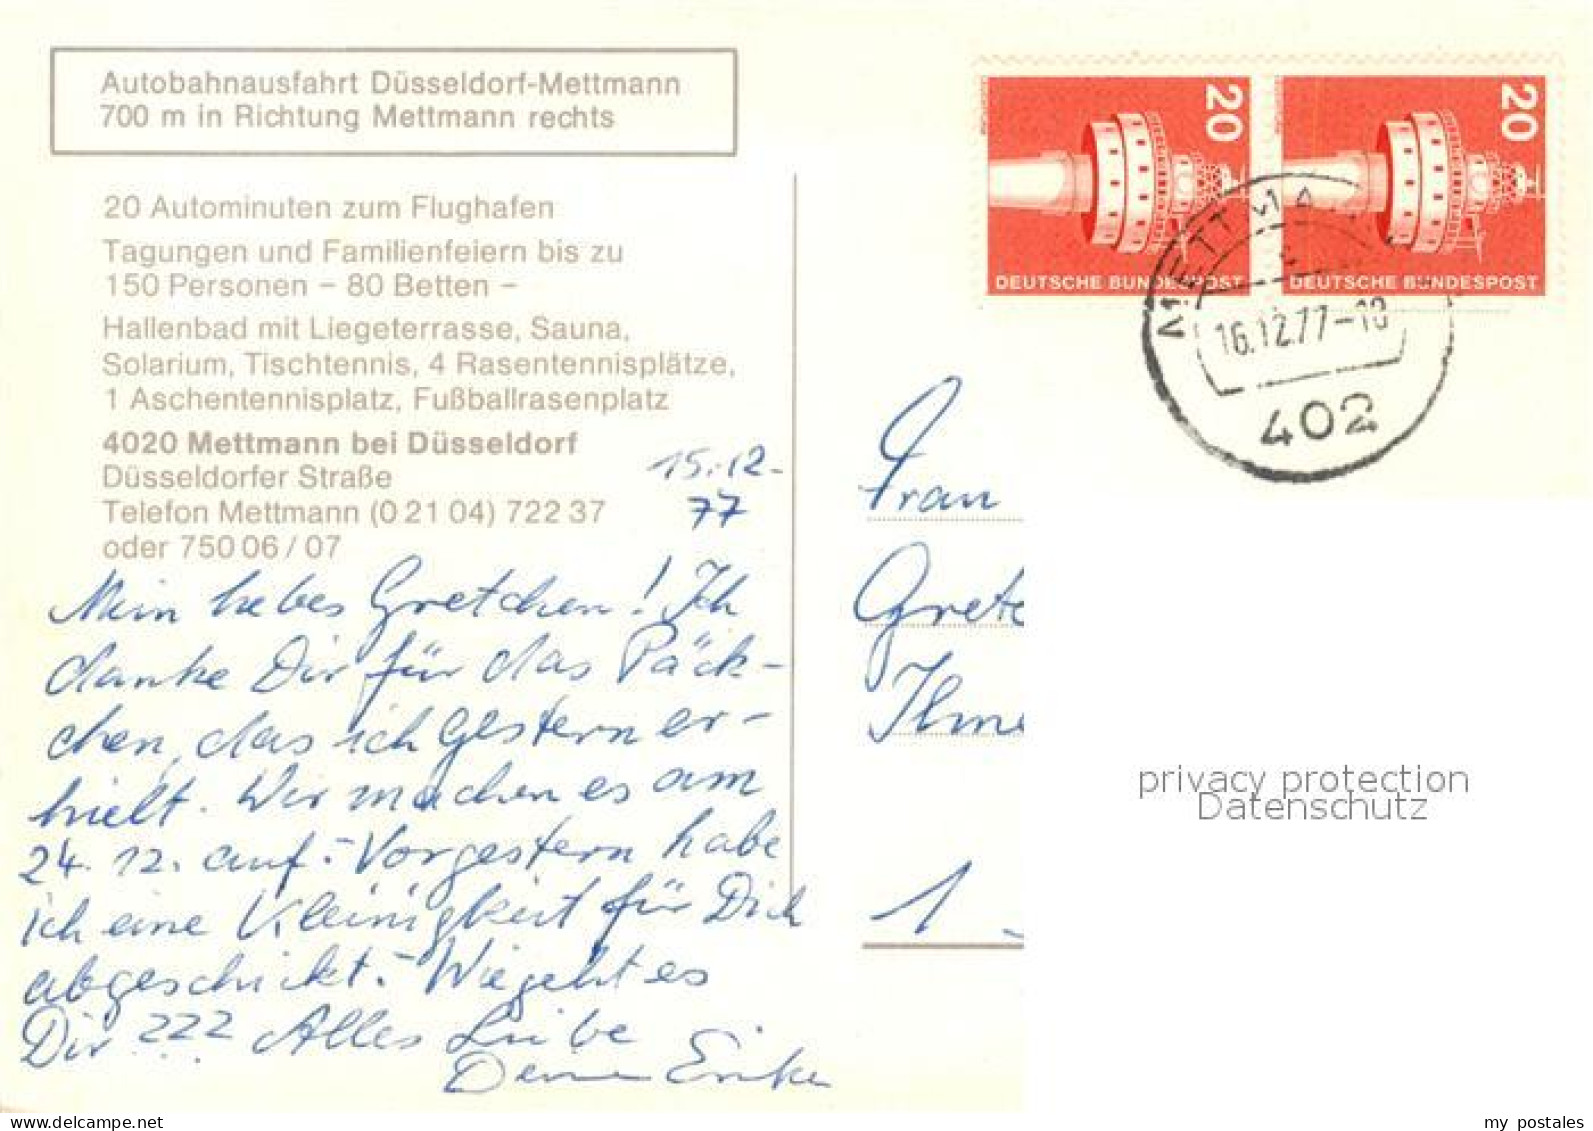 Autobahnausfahrt Düsseldorf-Mettmann
700 m in Richtung Mettmann rechts
20 Autominuten zum Flughafen
Tagungen und Familienfeiern bis zu
150 Personen – 80 Betten –
Hallenbad mit Liegeterrasse, Sauna,
Solarium, Tischtennis, 4 Rasentennisplätze,
1 Aschentennisplatz, Fußballrasenplatz
4020 Mettmann bei Düsseldorf
Düsseldorfer Straße
Telefon Mettmann (0 21 04) 722 37
oder 750 06 / 07
15.12.
77
Mein liebes Gretchen! Ich
danke Dir für das Päck-
chen, das ich gestern er-
hielt. Wir machen es am
24. 12. auf. – Vorgestern habe
ich eine Kleinigkeit für Dich
abgeschickt. – Wie geht es
Dir ??? Alles Liebe
Deine Erika
20
DEUTSCHE BUNDESPOST
20
DEUTSCHE BUNDESPOST
METTMA
16.12.77-18
402
Frau
Grete
Ilme
1
privacy protection
Datenschutz
my postales